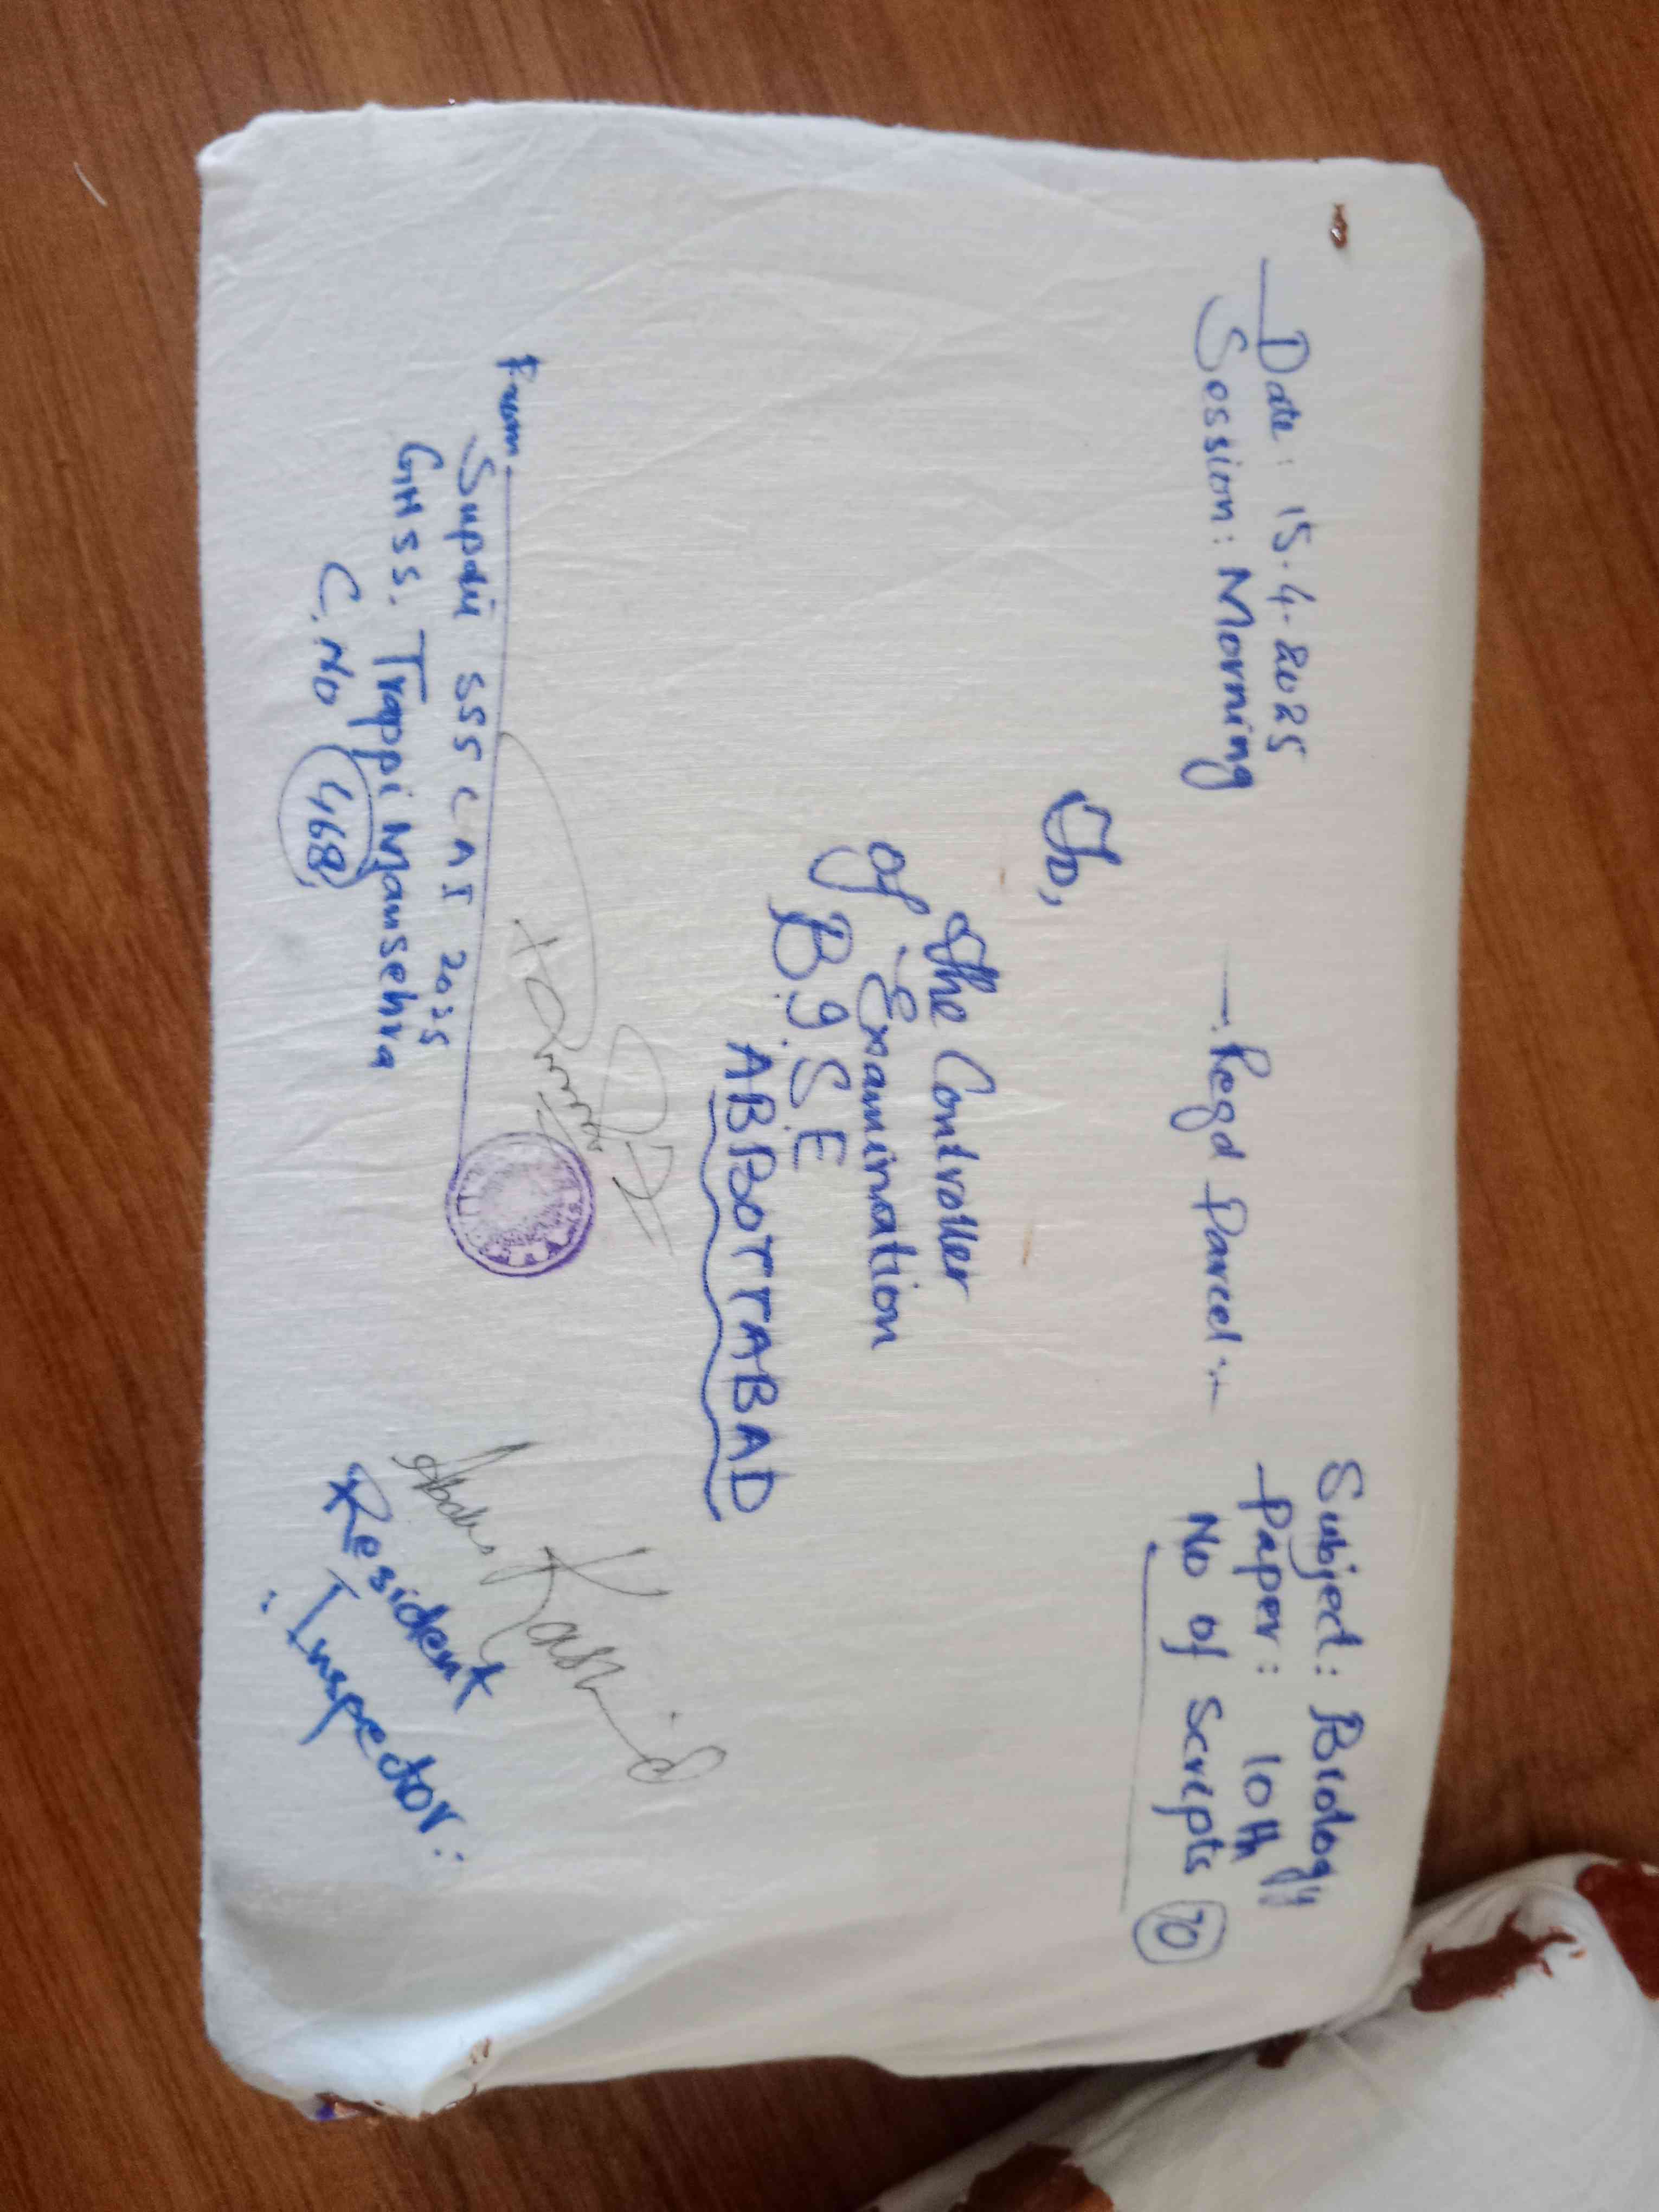 Date: 15.4.2025
Session: Morning
Regd Parcel:-
Subject: Biology
Paper: 10th
No of Scripts 70
To,
The Controller
of Examination
B.I.S.E
ABBOTTABAD
From
Supdtt SSC AI 2025
GHSS. Trappi Mansehra
C.No 468
Abdul Rashid
Resident
Inspector: